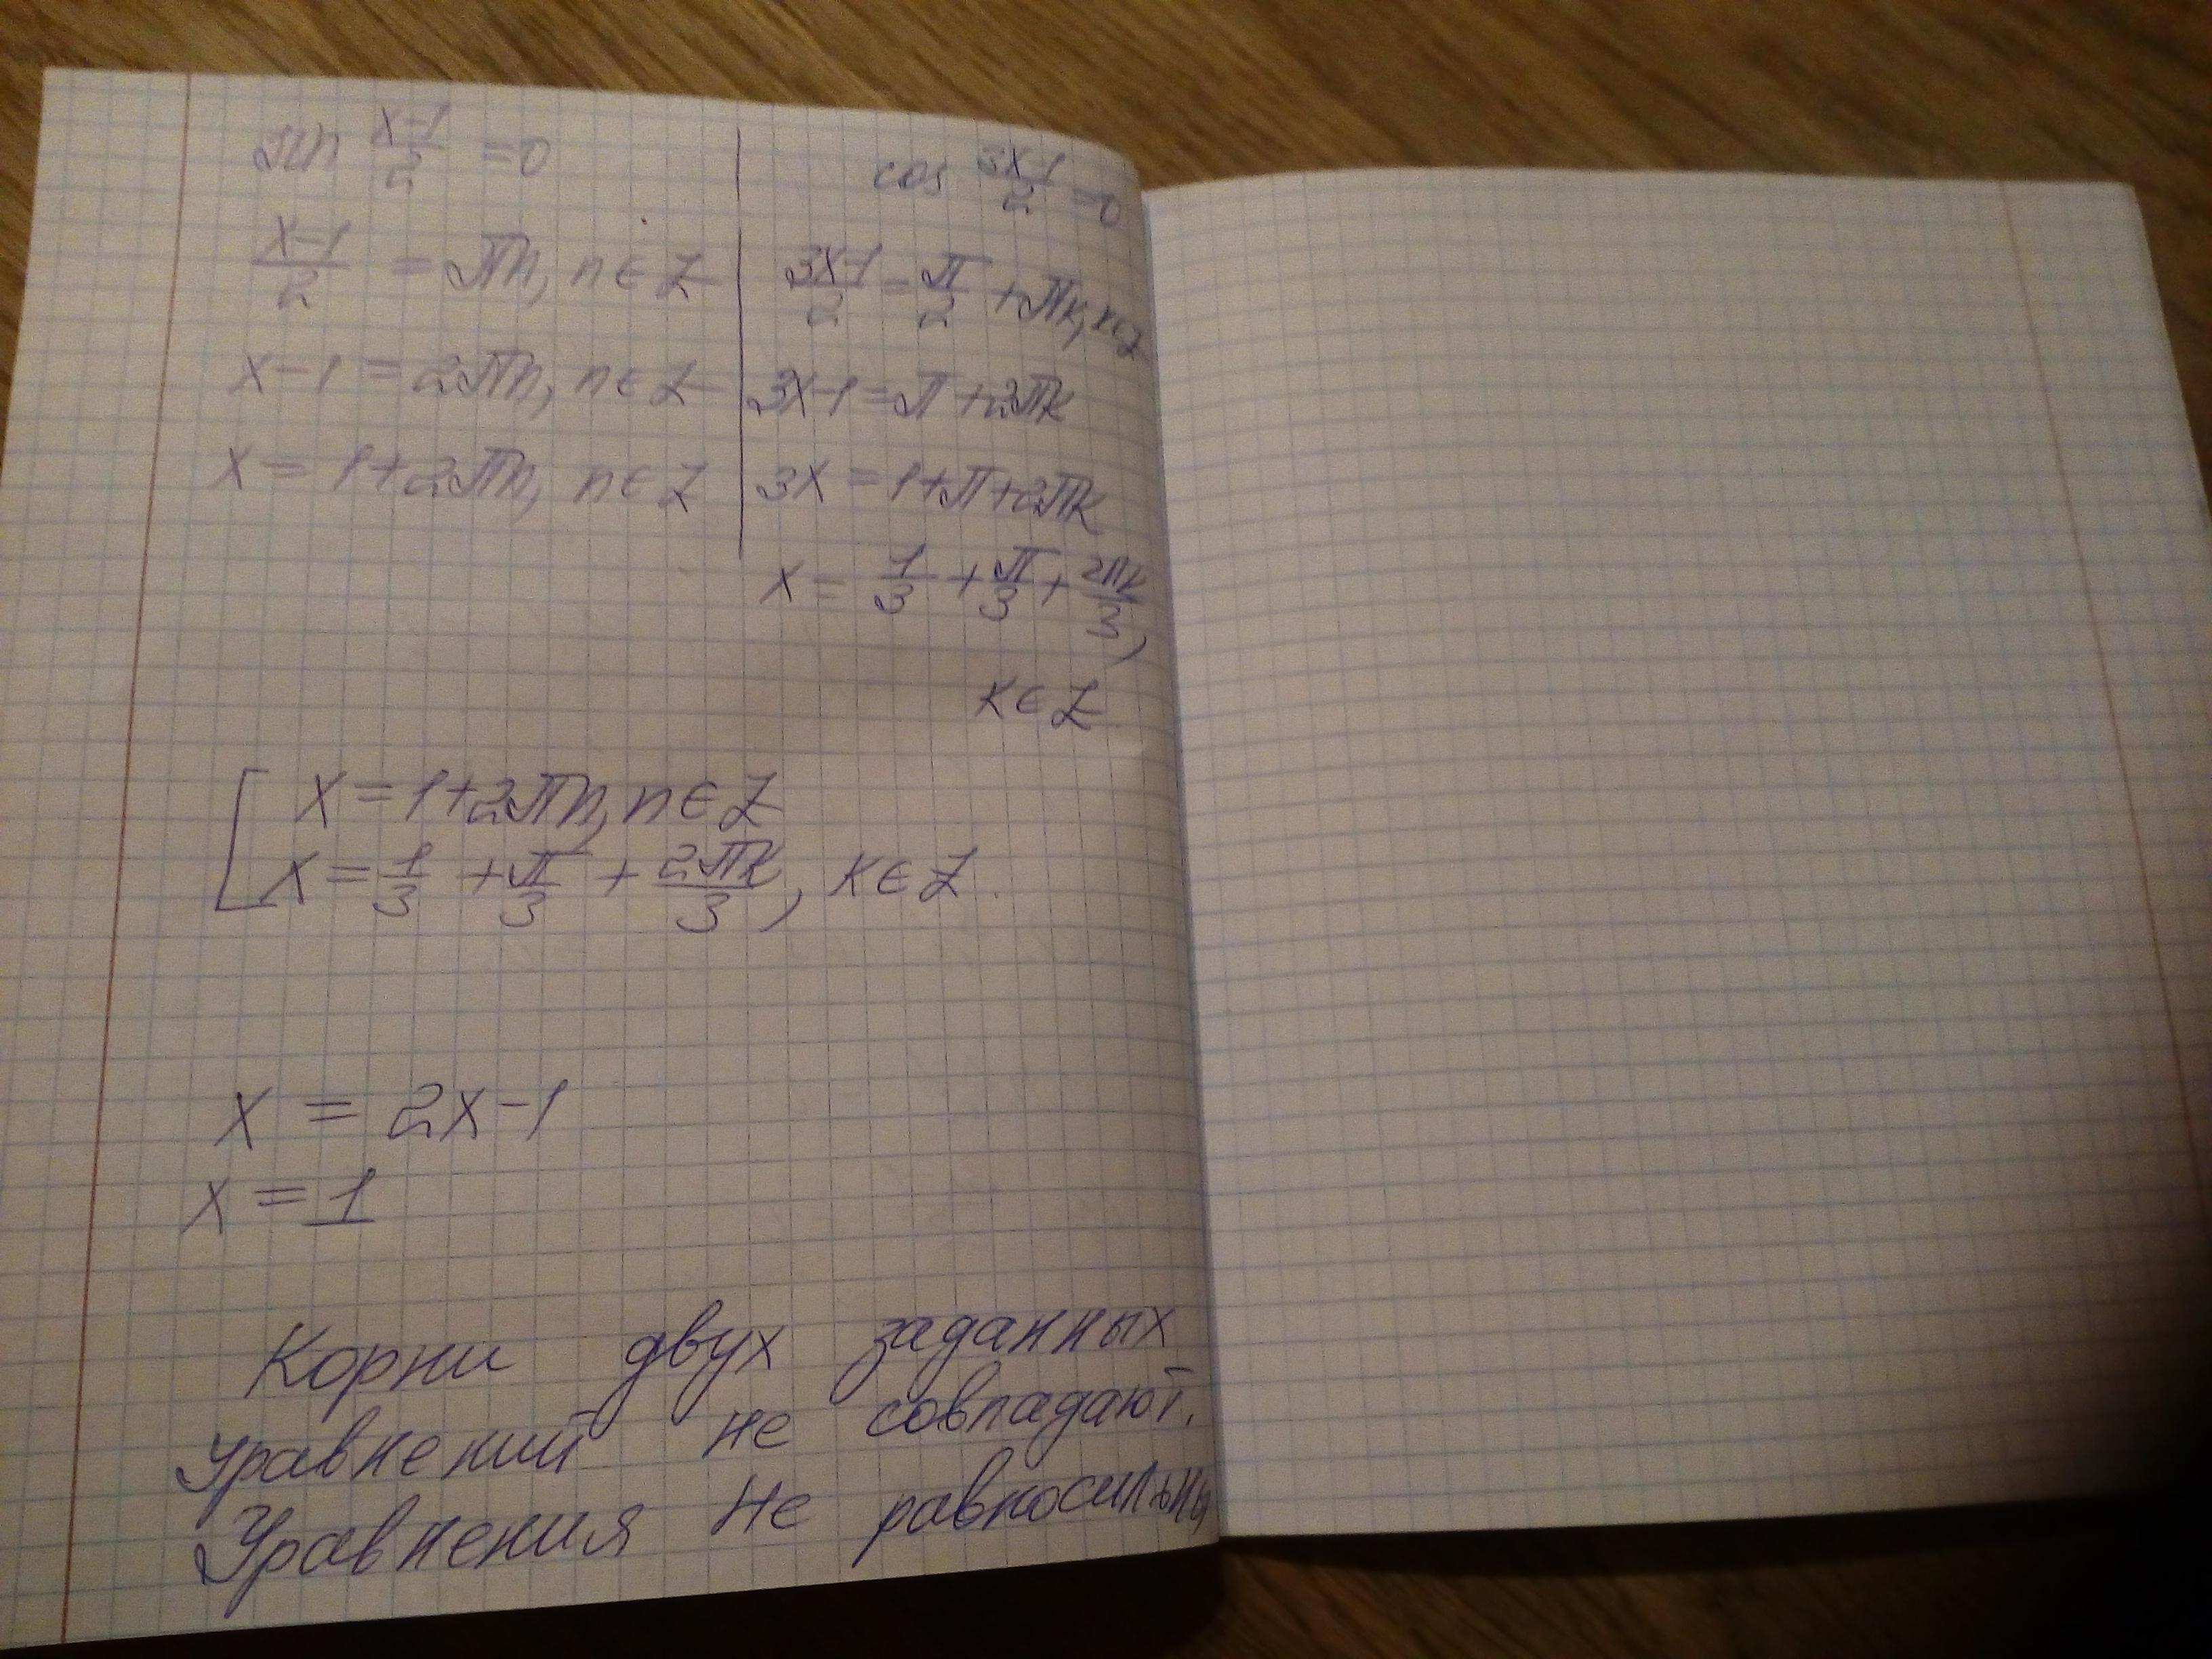 sin x-1/2 =0
x-1/2 = πn, n∈Z
x-1 = 2πn, n∈Z
x = 1+2πn, n∈Z
cos 3x-1/2 =0
3x-1/2 = π/2 + πk, k∈Z
3x-1 = π+2πk
3x = 1+π+2πk
x = 1/3 + π/3 + 2πk/3,
k∈Z
[ x = 1+2πn, n∈Z
x = 1/3 + π/3 + 2πk/3, k∈Z.
x = 2x-1
x = 1
Корни двух заданных
уравнений не совпадают.
Уравнения не равносильны